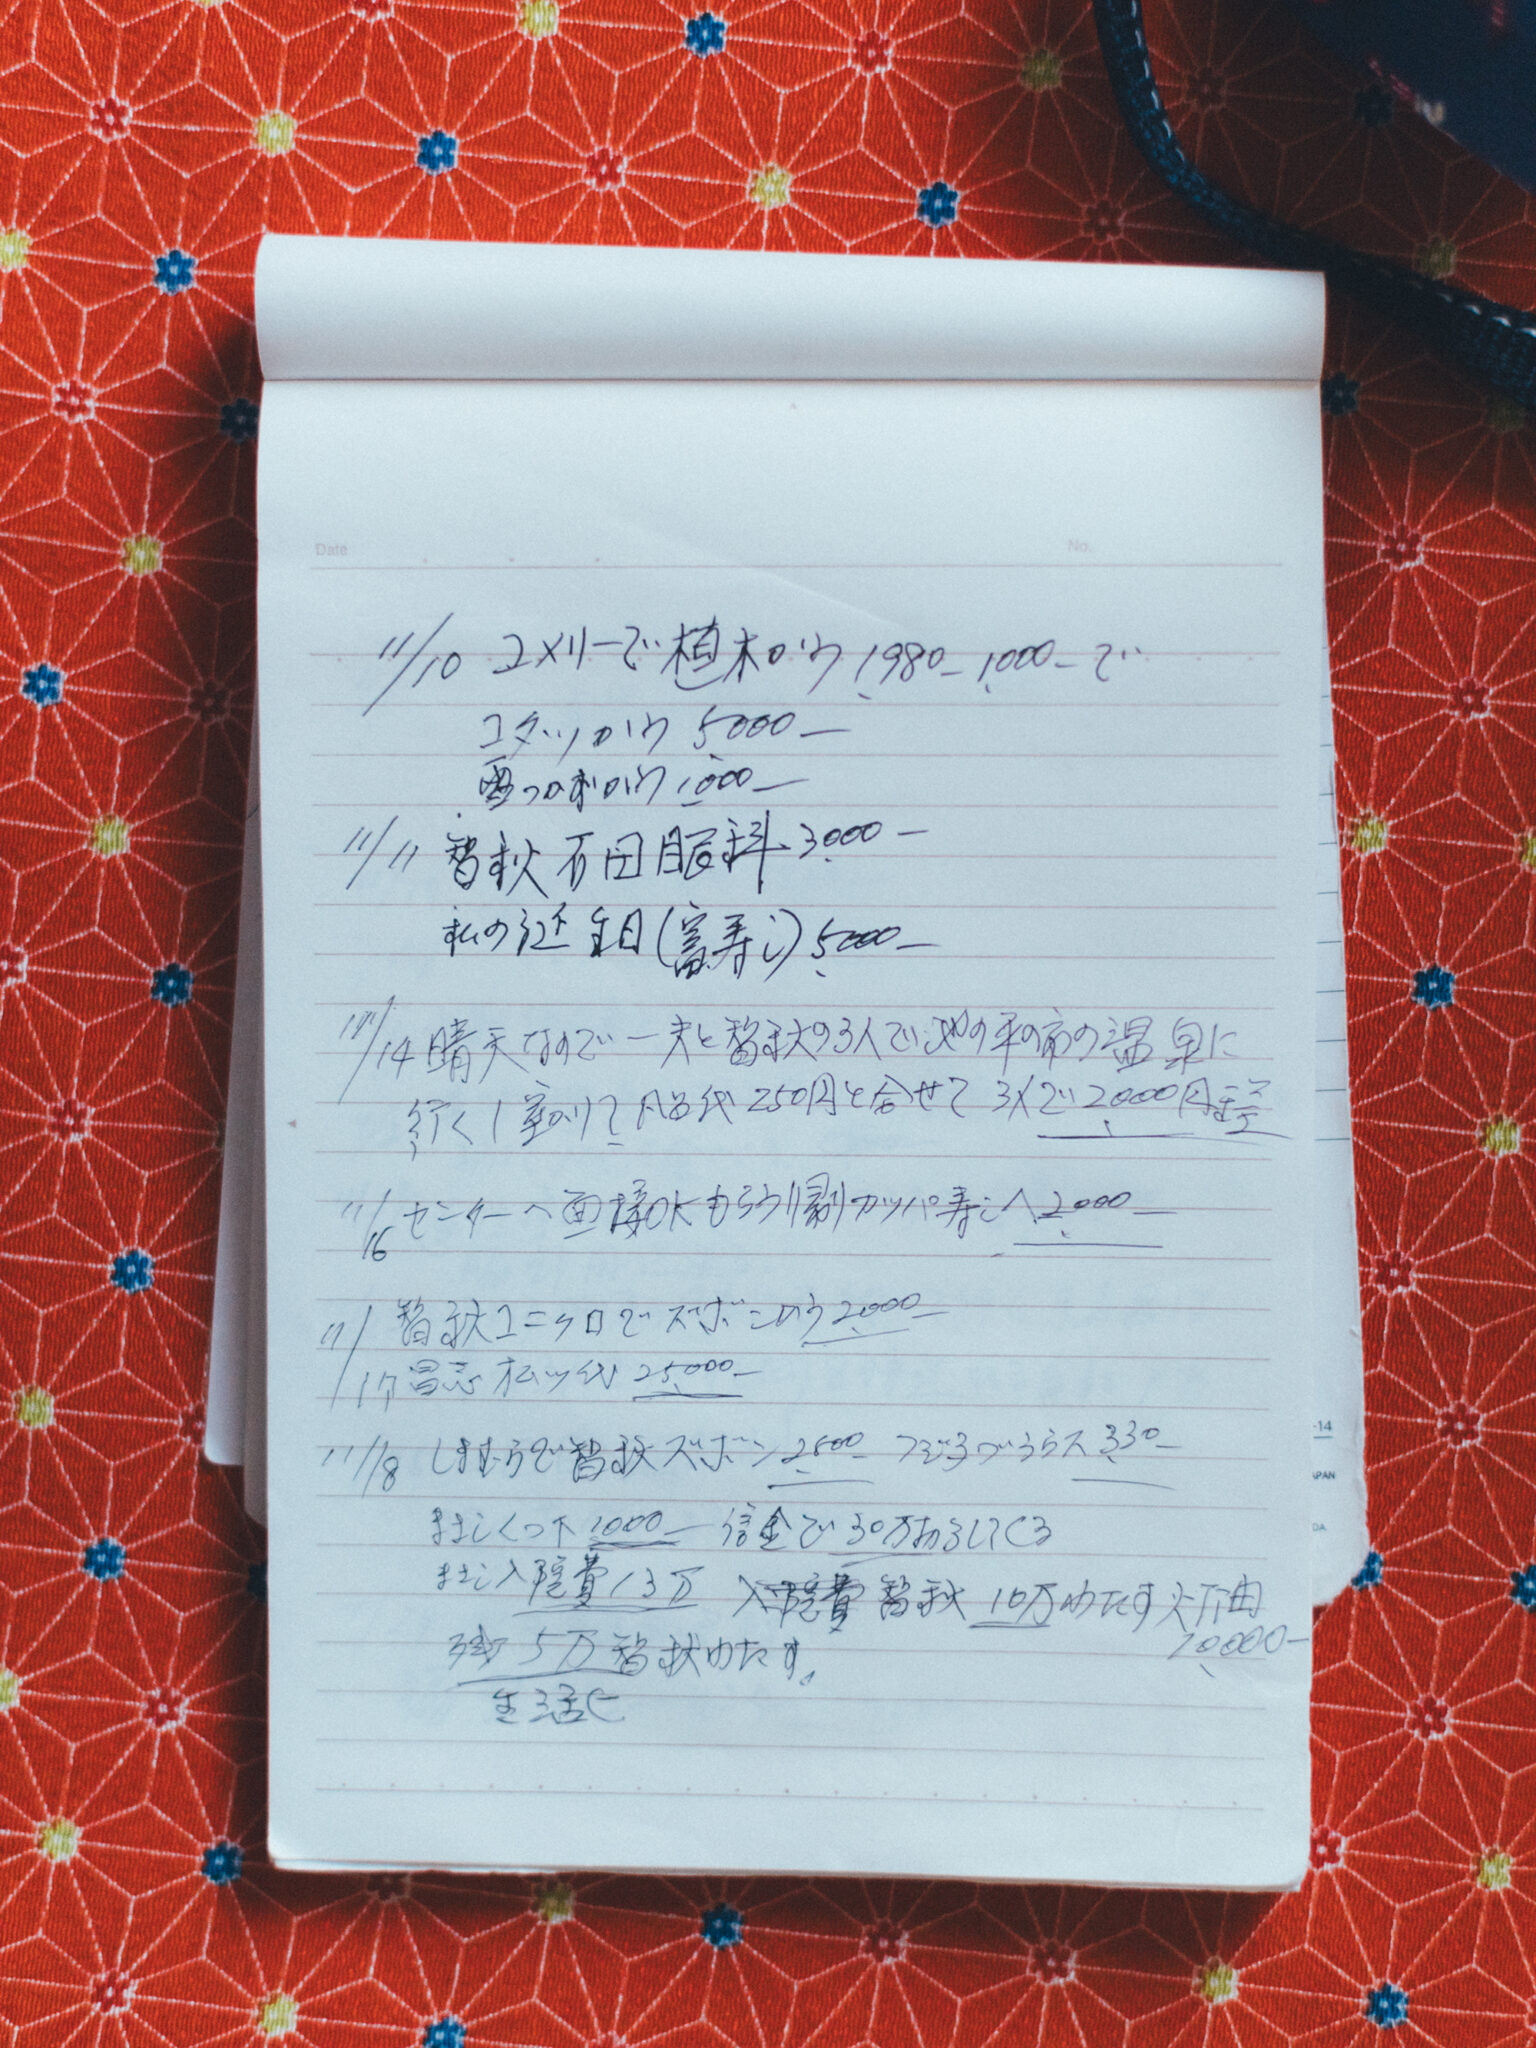 Date No.
11/10 コメリーで植木かう 1980- 1000-で
コタツかう 5000-
雪つかきかう 1000-
11/11 智秋 石田眼科 3000-
私の誕生日(富寿し) 5000-
11/14 晴天なので一夫と智秋の3人で 温泉に
行く 250円と合せて 3人で2000円
11/16 センターへ面接OKもらう カッパ寿しへ2000-
11/17 智秋ユニクロでズボンかう2000-
25000-
11/18 しまむらで智秋ズボン2500- 330-
まさしくつ下1000- 信金で30万おろしてくる
まさし入院費13万 入院費智秋10万わたす灯油
20000-
残り5万智秋わたす。
生活
-14
APAN
DA